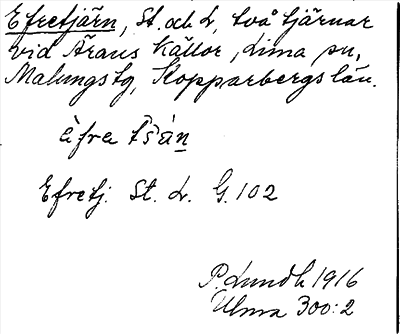 Efretjärn, St. och L, två tjärnar
vid Ärans källor, Lima sn,
Malungs tg, Kopparbergs län.
èfre tšá̀n
Efretj. St. L. G. 102
P. Lundh 1916
Ulma 300:2